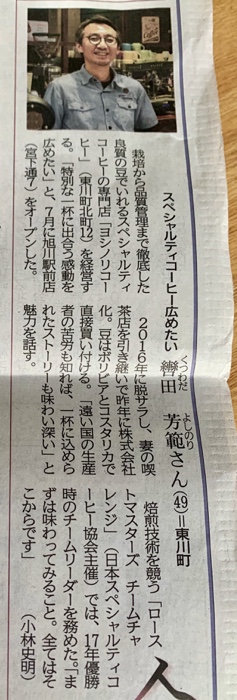 スペシャルティコーヒー広めたい
くつわだ よしのり
轡田 芳範さん㊾＝東川町
栽培から品質管理まで徹底した
良質の豆でいれるスペシャルティ
コーヒーの専門店「ヨシノリコー
ヒー」（東川町北町12）を経営す
る。「特別な一杯に出合う感動を
広めたい」と、7月に旭川駅前店
（宮下通7）をオープンした。
2016年に脱サラし、妻の喫
茶店を引き継いで昨年に株式会社
化。豆はボリビアとコスタリカで
直接買い付ける。「遠い国の生産
者の苦労も知れば、一杯に込めら
れたストーリーも味わい深い」と
魅力を話す。
焙煎技術を競う「ロース
トマスターズ チームチャ
レンジ」（日本スペシャルティコ
ーヒー協会主催）では、17年優勝
時のチームリーダーを務めた。「ま
ずは味わってみること。全てはそ
こからです」 （小林史明）
人